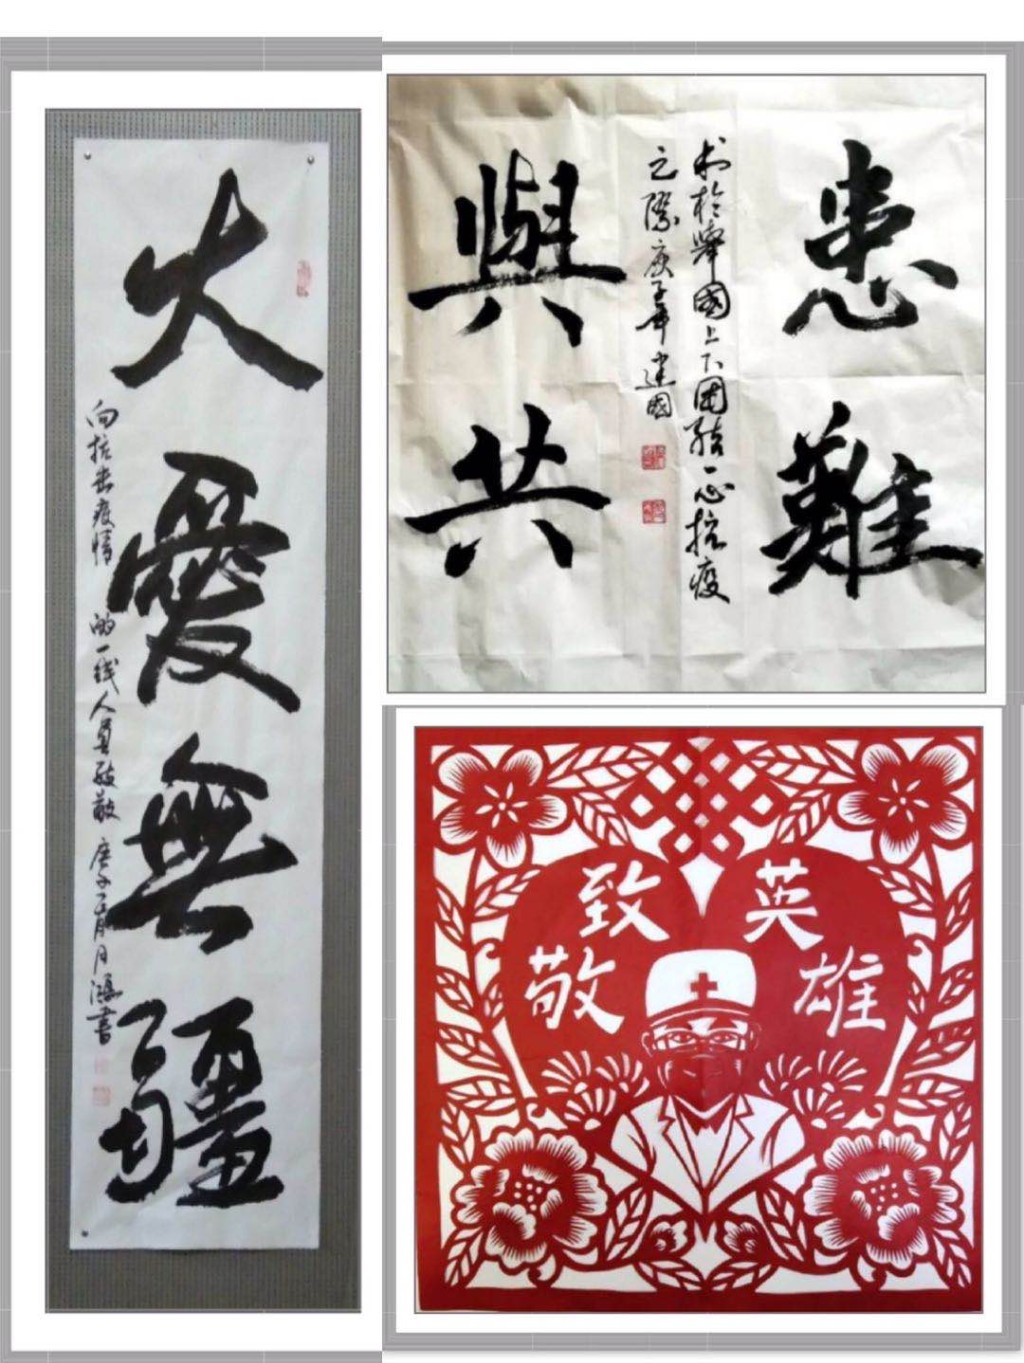 大愛無疆
向抗击疫情的一线人員致敬 庚子二月月鴻書
患難
與共
书於舉國上下团结一心抗疫
之際庚子年建國
致敬
英雄